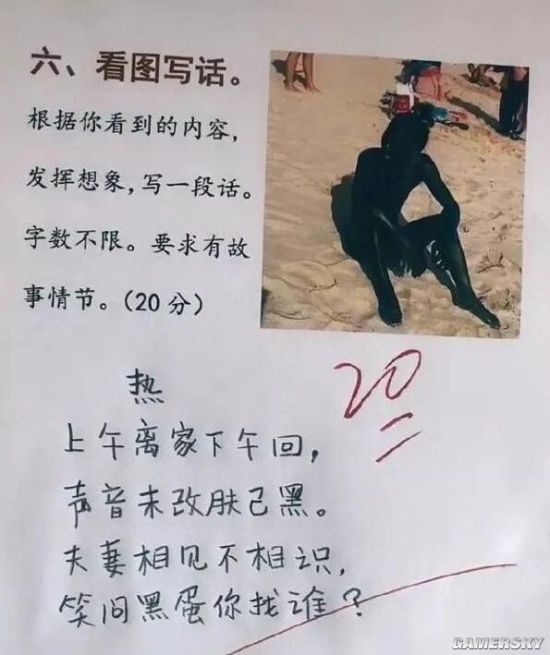 六、看图写话。
根据你看到的内容，
发挥想象，写一段话。
字数不限。要求有故
事情节。(20分)
20
热
上午离家下午回，
声音未改肤已黑。
夫妻相见不相识，
笑问黑蛋你找谁？
GAMERSKY